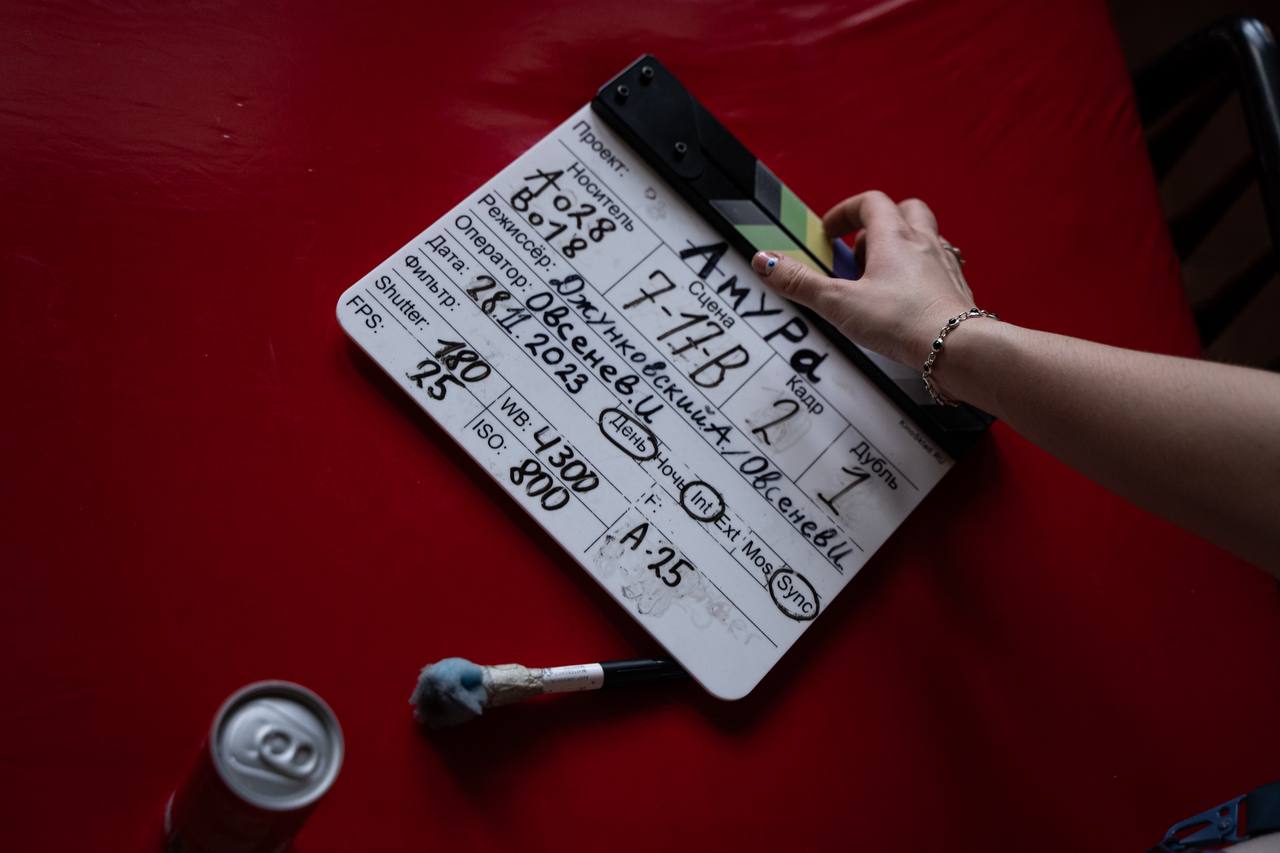 Проект: Амура
Носитель Сцена Кадр Дубль
A028
B018 7-17-В 2 1
Режиссёр: Джунковский А./Овсенев И
Оператор: Овсенев.И
Дата: 28.11.2023 День Ночь Int Ext Mos Sync
Фильтр: F:
Shutter: 180 WB: 4300 A-25
FPS: 25 ISO: 800